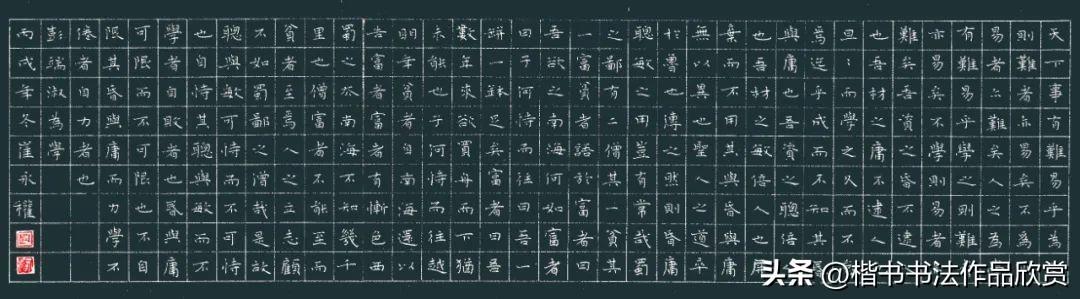 天下事有難易乎為
則難者亦易矣不為
易者亦難矣人之為
有難易乎學之則難
亦易矣不學則易者
難矣吾資之昏不逮
也吾材之庸不逮人
旦〻而學之久而不
焉迄乎成而不知其
與庸也吾資之聰倍
也吾材之敏倍人也屏
棄而不用其與昏與庸
無以異也聖人之道卒
於魯也傳之然則昏庸
聰敏之用豈有常哉蜀
之鄙有二僧其一貧其
一富貧者語於富者曰
吾欲之南海何如富者
曰子何恃而往曰吾一
缾一缽足矣富者曰吾
數年來欲買舟而下猶
未能也子何恃而往越
明年貧者自南海還以
告富者富者有慚色西
蜀之去南海不知幾千
里也僧富者不能至而
貧者至焉人之立志顧
不如蜀鄙之僧哉是故
聰與敏可恃而不可恃
也自恃其聰與敏而不
學者自敗者也昏與庸
可限而不可限也不自
限其昏與庸而力學不
倦者自力者也
彭端淑為學
丙戌年冬崔永權
头条@楷书书法作品欣赏